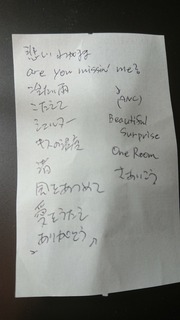 悲しい
are you missin' me?
冷たい雨
こたえて
シェルター
キスの温度
渚
風をあつめて
愛をうたえ
ありがとう
(ANC)
Beautiful
Surprise
One Room
さあいこう